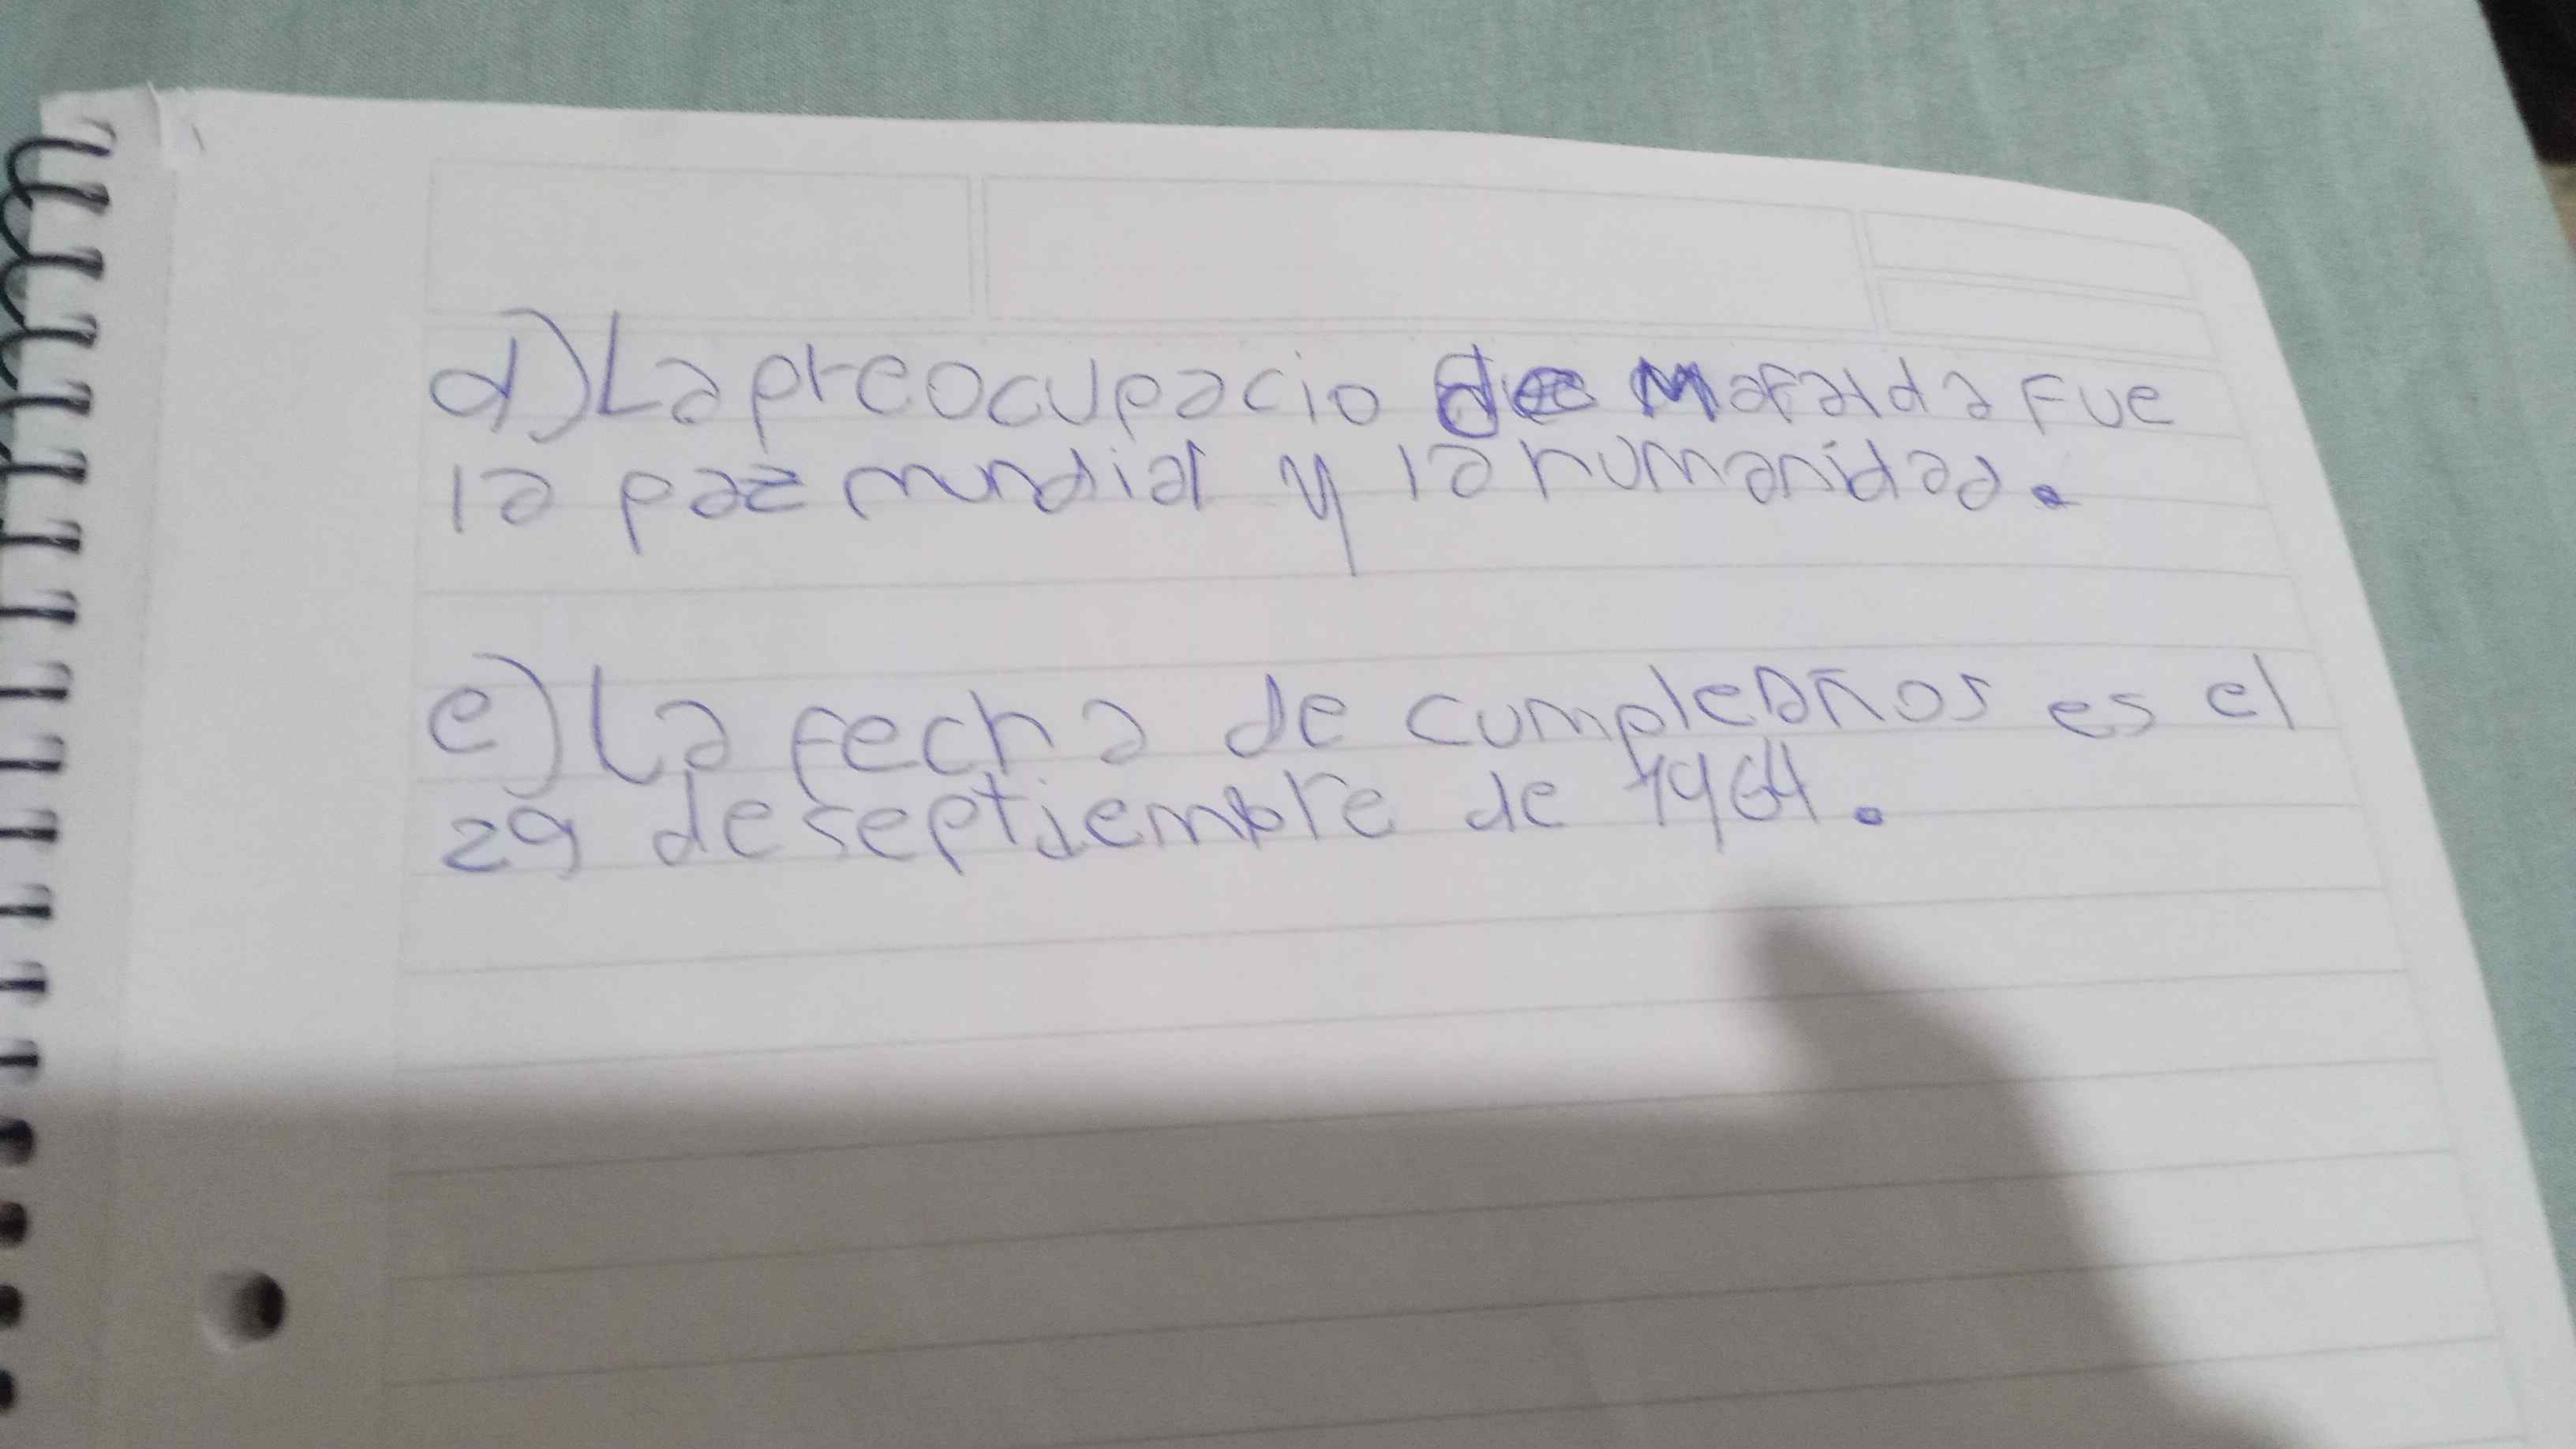 d) La preocupacio de Mafalda fue
la paz mundial y la humanidad.
e) La fecha de cumpleaños es el
29 de septiembre de 1964.